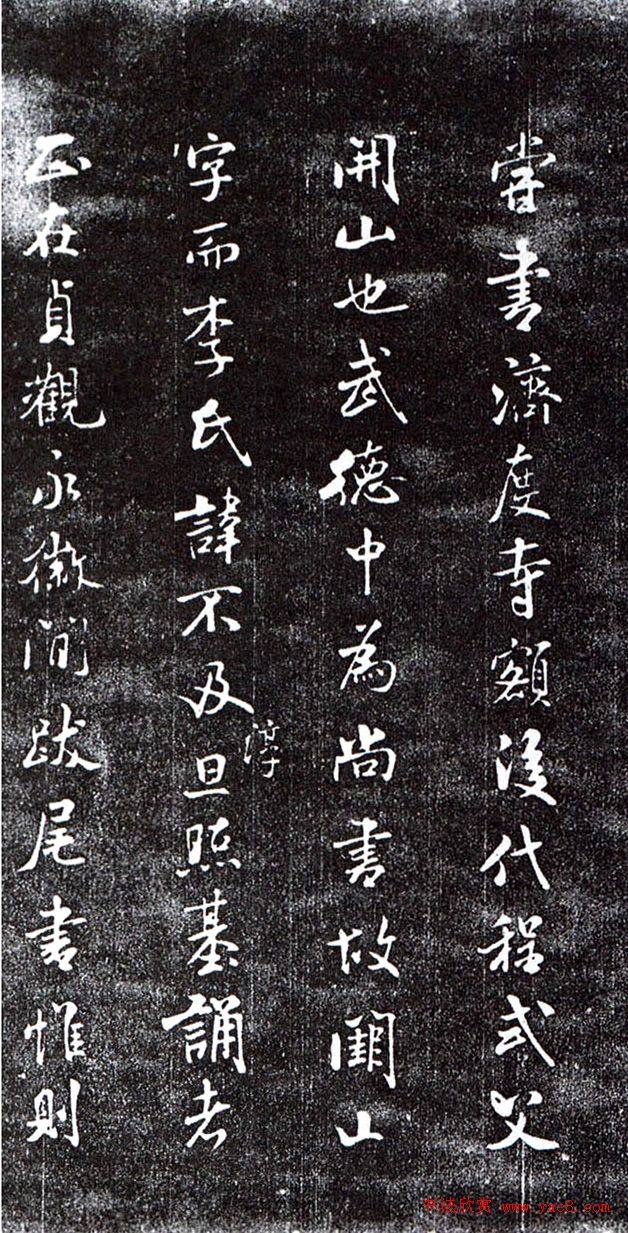 嘗書濟度寺額後代程式父
開山也武德中為尚書故闕山
字而李氏諱不及淳旦照基誦者
正在貞觀永徽間跋尾書惟則
书法欣赏 www.yac8.com